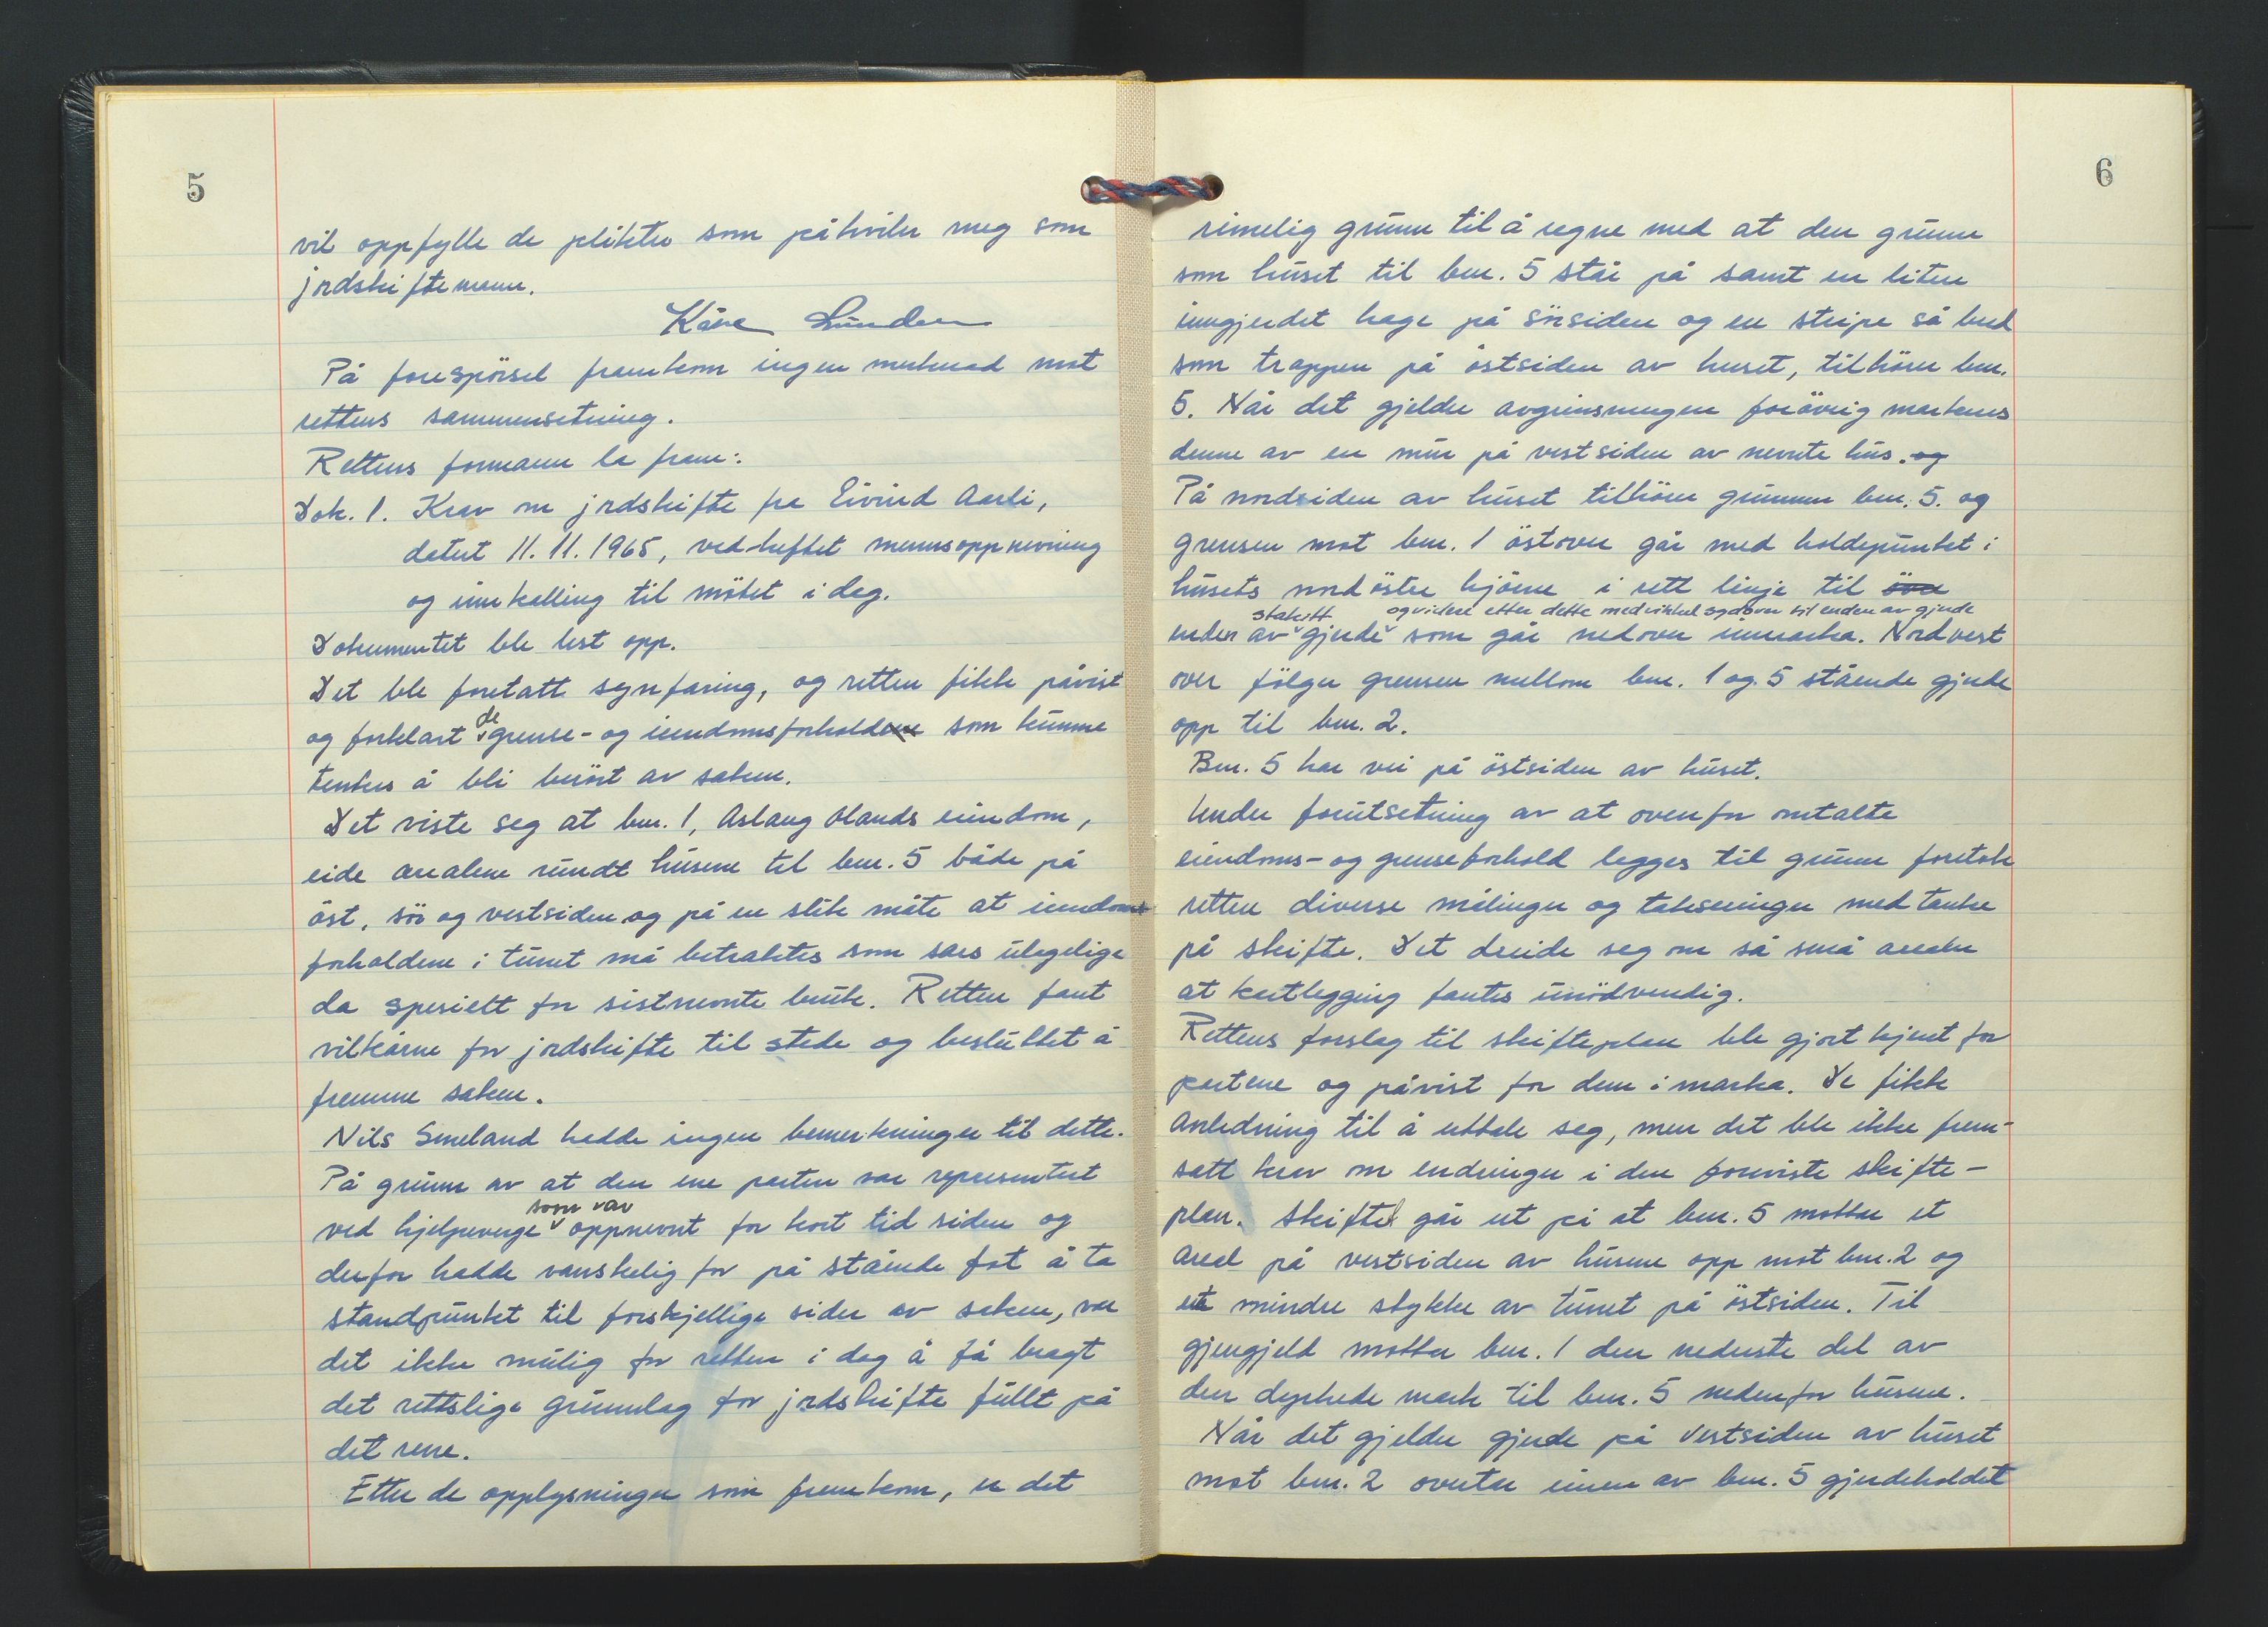 5
vil oppfylle de plikter som påhviler meg som
jordskiftemann.
Kåre Lunden
På forespörsel framkom ingen merknad mot
rettens sammensetning.
Rettens formann la fram:
Dok. 1. Krav om jordskifte fra Eivind Aasli,
datert 11.11.1965, ved-heftet mennsoppnevning
og innkalling til mötet i dag.
Dokumentet ble lest opp.
Det ble foretatt synfaring, og retten fikk påvist
og forklart de grense- og eiendomsforholdene som kunne
tenkes å bli berört av saken.
Det viste seg at bnr. 1, Aslaug Ølands eiendom,
eide arealene rundt husene til bnr. 5 både på
öst, sör og vestsiden og på en slik måte at eiendoms-
forholdene i tunet må betraktes som særs ulagelige
da spesielt for sistnevnte bruk. Retten fant
vilkårne for jordskifte til stede og besluttet å
fremme saken.
Nils Smeland hadde ingen bemerkninger til dette.
På grunn av at den ene parten var representert
ved hjelpeverge som var oppnevnt for kort tid siden og
derfor hadde vanskelig for på stående fot å ta
standpunkt til forskjellige sider av saken, var
det ikke mulig for retten i dag å få bragt
det rettslige grunnlag for jordskifte fullt på
det rene.
Etter de opplysninger som fremkom, er det
6
rimelig grunn til å regne med at den grunn
som huset til bnr. 5 står på samt en liten
inngjerdet hage på sörsiden og en stripe så bred
som trappen på östsiden av huset, tilhörer bnr.
5. Når det gjelder avgrensningen forövrig markeres
denne av en mur på vestsiden av nevnte hus. og
På nordsiden av huset tilhörer grunnen bnr. 5. og
grensen mot bnr. 1 östover går med holdepunkt i
husets nordöstre hjörne i rett linje til övre
stakitt og videre etter dette med vinkel sydover til enden av gjerde
enden av gjerde som går nedover innmarka. Nordvest
over fölger grensen mellom bnr. 1 og 5 stående gjerde
opp til bnr. 2.
Bnr. 5 har vei på östsiden av huset.
Under forutsetning av at ovenfor omtalte
eiendoms- og grenseforhold legges til grunn foretok
retten diverse målinger og takseringer med tanke
på skifte. Det dreide seg om så små arealer
at kartlegging fantes unödvendig.
Rettens forslag til skifteplan ble gjort kjent for
partene og påvist for dem i marka. De fikk
anledning til å uttale seg, men det ble ikke frem-
satt krav om endringer i den foreviste skifte-
plan. Skiftet går ut på at bnr. 5 mottar et
areal på vestsiden av husene opp mot bnr. 2 og
et mindre stykke av tunet på östsiden. Til
gjengjeld mottar bnr. 1 den nederste del av
den dyrkede mark til bnr. 5 nedenfor husene.
Når det gjelder gjerde på vestsiden av huset
mot bnr. 2 overtar eieren av bnr. 5 gjerdeholdet